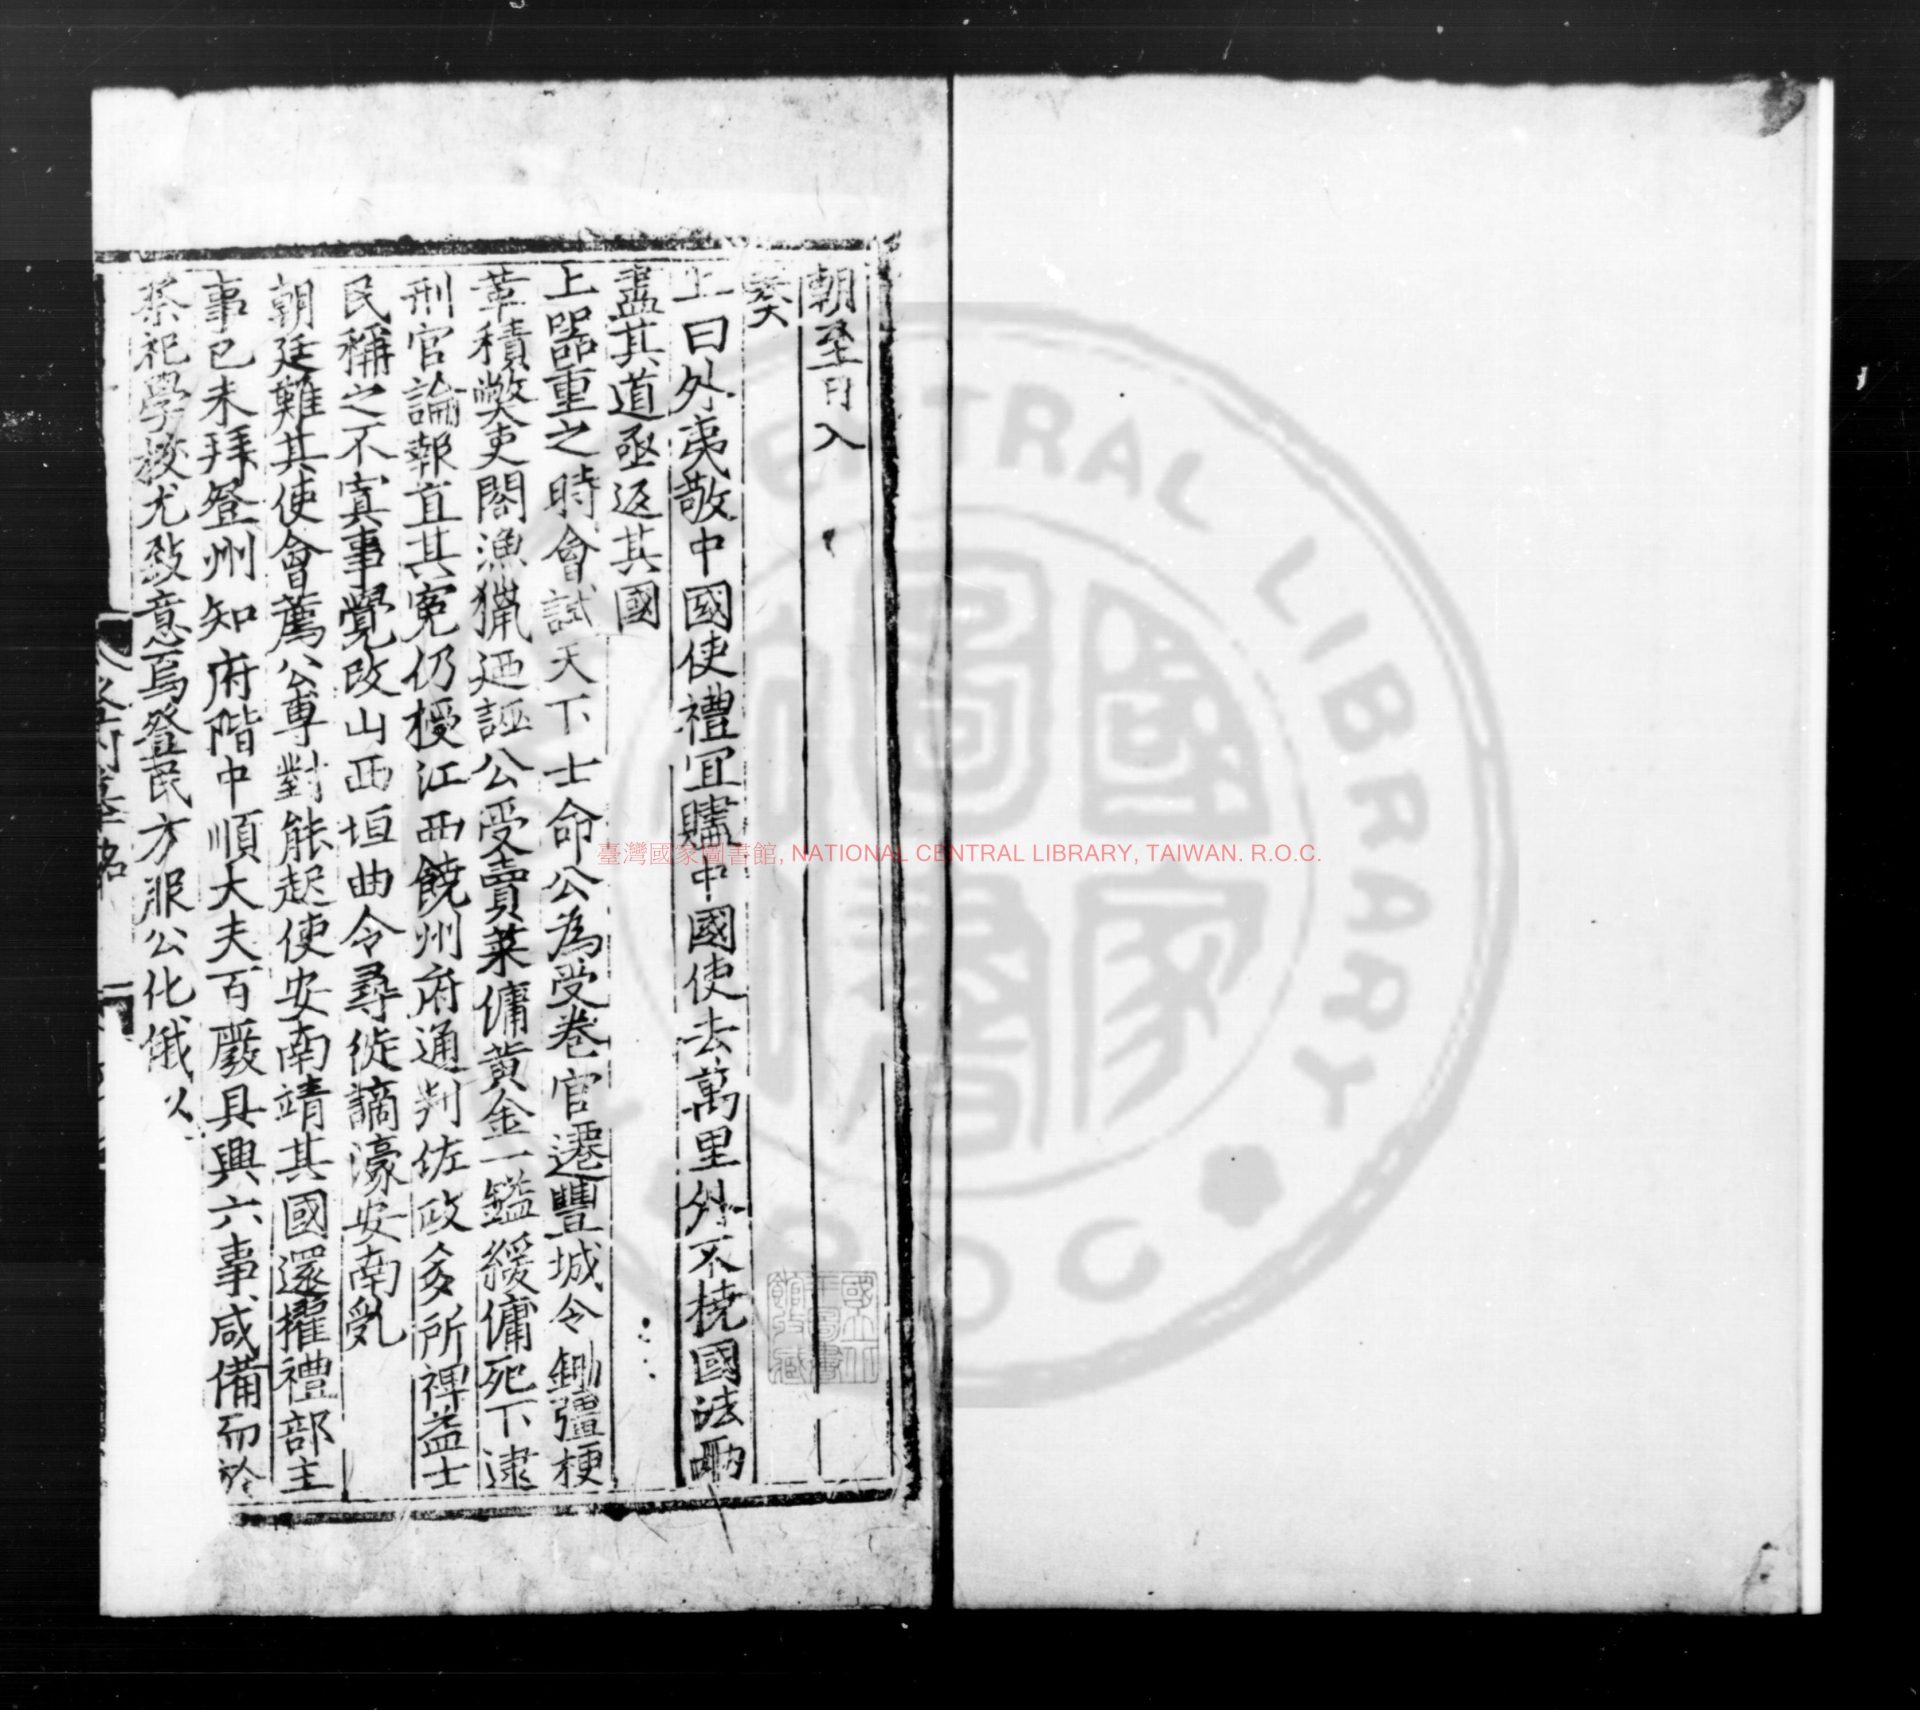 朝至日入
奏
上曰外夷敬中國使禮宜贐中國使去萬里外不撓國法
盡其道亟返其國
上器重之時會試天下士命公為受卷官遷豐城令鋤彊梗
革積獘吏閤漁獵迺誣公受賣菜傭黃金一鎰緩傭死下逮
刑官論報直其冤仍授江西饒州府通判佐政多所裨益士
民稱之不寘事覺改山西垣曲令尋徙謫濠安南亂
朝廷難其使會薦公專對能起使安南靖其國還擢禮部主
事已未拜登州知府階中順大夫百廢具興六事咸備而於
祭祀學校尤致意焉登民方服公化俄以
臺灣國家圖書館, NATIONAL CENTRAL LIBRARY, TAIWAN. R.O.C.
CENTRAL LIBRARY
R O C
國家圖書